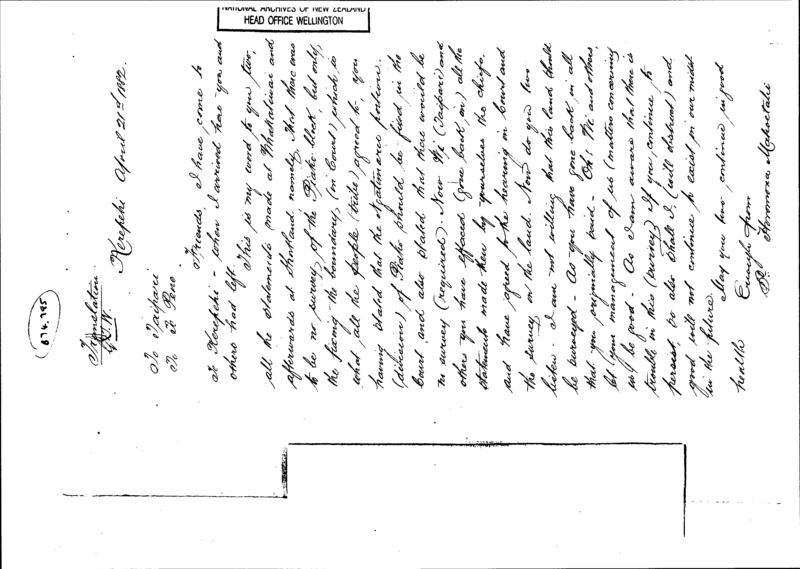 NATIONAL ARCHIVES OF NEW ZEALAND
HEAD OFFICE WELLINGTON
874.795
Translation
G.W.
Kerepehi April 21st 1882.
To Taipari
To Te Peno
Friends, I have come to
to Kerepehi - when I arrived here you and
others had left. This is my word to you two,
all the statements made at Whakatiwai and
afterwards at Shortland namely, That there was
to be no survey of the Piako block, but only,
the fixing the boundary, (in Court) which is
what all the people (tribe) agreed to, you
having stated that the Ngatimaru portion
(division) of Piako should be fixed in the
Court and also stated that there would be
no survey (required). Now (Taipari) and
others you have effaced (gone back on) all the
statements made then by yourselves the chiefs.
and have agreed to the hearing in Court and
the survey on the land. Now do you two
listen. I am not willing that this land should
be surveyed - As you have gone back on all
that you originally said - Oh! and others,
let your management of us (matters concerning
us) be good. As I am aware that there is
trouble in this (survey) If you continue to
persist, so also shall I, (will disturb) and
good will not continue to exist in our midst
in the future.
May you two, continue in good
health
Enough from
Haromona